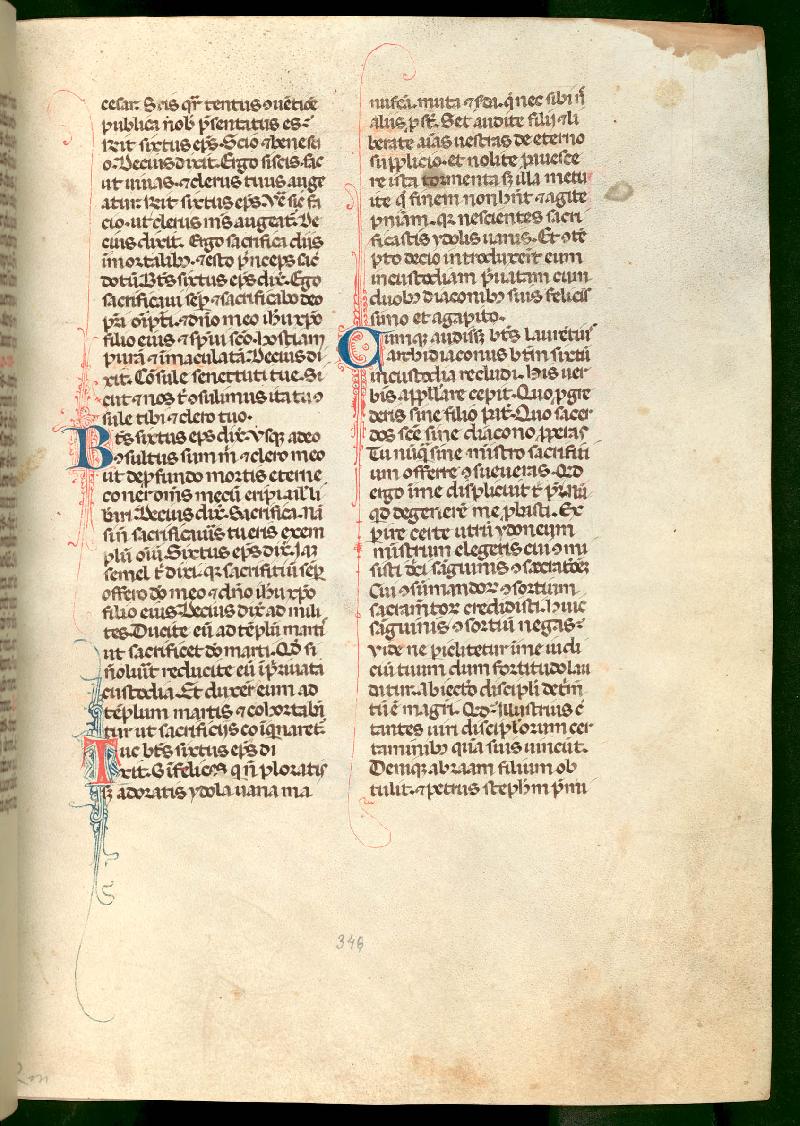 cesar. Scis qr tentus ⁊ uēticē
publica nob p̄sentatus es.
Rīt sixtus ep̄s. Scio ⁊ bene sci
o. Decius dixit. Ergo si scis. fac
ut uiuas. ⁊ clerus tuus auge
atur. Rīt sixtus ep̄s. Ve sic fa
cio. ut clerus m̄s augeat̄. De
cius dixit. Ergo sacrifica diis
īmortalib. ⁊ esto p̄nceps sac̄
dotū. Bt̄s sixtus ep̄s dix̄. Ego
sacrificaui sep̄ ⁊ sacrificabo deo
pr̄i oīpt̄i. ⁊ dn̄o meo ihū xp̄o
filio eius ⁊ sp̄ui scō. hostiam
purā ⁊ īmaculatā. Decius di
xit. Cōsule senectuti tue. Si
cut ⁊ nos t̄ ꝯsulimus ita tu ꝯ
sule tibi ⁊ clero tuo.
Bt̄s sixtus ep̄s dix̄. Vsq̄ adeo
ꝯsultus sum m̄ ⁊ clero meo
ut de p̄fundo mortis eterne
coner om̄s mecū eripi a
Decius dix̄. Sacrifica. Nā
sin̄ sacrificauīs tu eris exem
plū oīuī. Sixtus ep̄s dix̄. Iaz
semel t̄ dixi. qr sacrifitiū sep̄
offero do meo ⁊ dn̄o ihū xp̄o
filio eius. Decius dix̄ ad mili
tes. Ducite eū ad tēplū marti
ut sacrificet do marti. Qd̄ si
noluīt reducite eū ī p̄uata
custodia. Et duxer̄ eum ad
tēplum martis ⁊ cohortabā
tur ut sacrificiis coīquaret̄.
Tuc bt̄s sixtus ep̄s di
xit. O īfelices qn̄ ploratis
⁊ adoratis ydola uana ma
nufcā. muta ⁊ sdi. q̄ nec sibi n̄
aliis p̄st̄. Set audite filii ⁊ li
berate aīas uestras de eterno
supplicio. et nolite ptimesce
re ista tormenta s̄ illa metu
ite q̄ finem non hn̄t ⁊ agite
pn̄iam. qr nescientes sacri
ficastis ydolis uanis. Et ōtē
pto decio introduxer̄t eum
in custodiam p̄uatam cum
duob diaconib suis felicis
simo et agapito.
Cumq̄ audiss̄ bt̄s laurētius
archidiaconus bt̄m sixtū
in custodia recludi. his uer
bis appllare cepit. Quo pgre
deris sine filio pat̄. Quo sacer
dos scē sine diacono pperas
Tu nūq̄ sine mīstro sacrifiti
um offerre ꝯsueueras. Qd̄
ergo ī me displicuit t̄ pr̄. nū
qd degenerē me pbasti. Ex
pire certe utrū ydoneum
mīstrum elegeris cui ꝯmi
sisti dci sāguinis ꝯsecratōez
Cui ꝯsūmandor̄ ꝯsortium
sacrām̄tor̄ credidisti. huic
sāguinis ꝯsortiū negas.
Vide ne piclitetur ī me iudi
ciū tuum dum fortitudo lau
datur. abiectio discipli det̄m
tū ē magri. Qd illustrius ē
tantes uiri disciplorum cer
taminib quā suis uincūt.
Deniq̄ abraam filium ob
tulit. ⁊ petrus stephm p̄mi
346